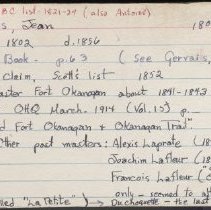 BC list. 1821-24 (also Antoine)
s, Jean 18
1802 d. 1856
Book. p. 63 (See Gervais,
Claim, Scott's list 1852
aster Fort Okanagan about 1841-1843
OHQ March. 1914 (Vol. 15) p.
d Fort Okanagan & Okanagan Trail"
Other post masters: Alexis Laprate (18
Joachim Lafleur (18
Francois Lafleur ("
only - seemed to a
lled "La Petite") → Duchoquette - the last